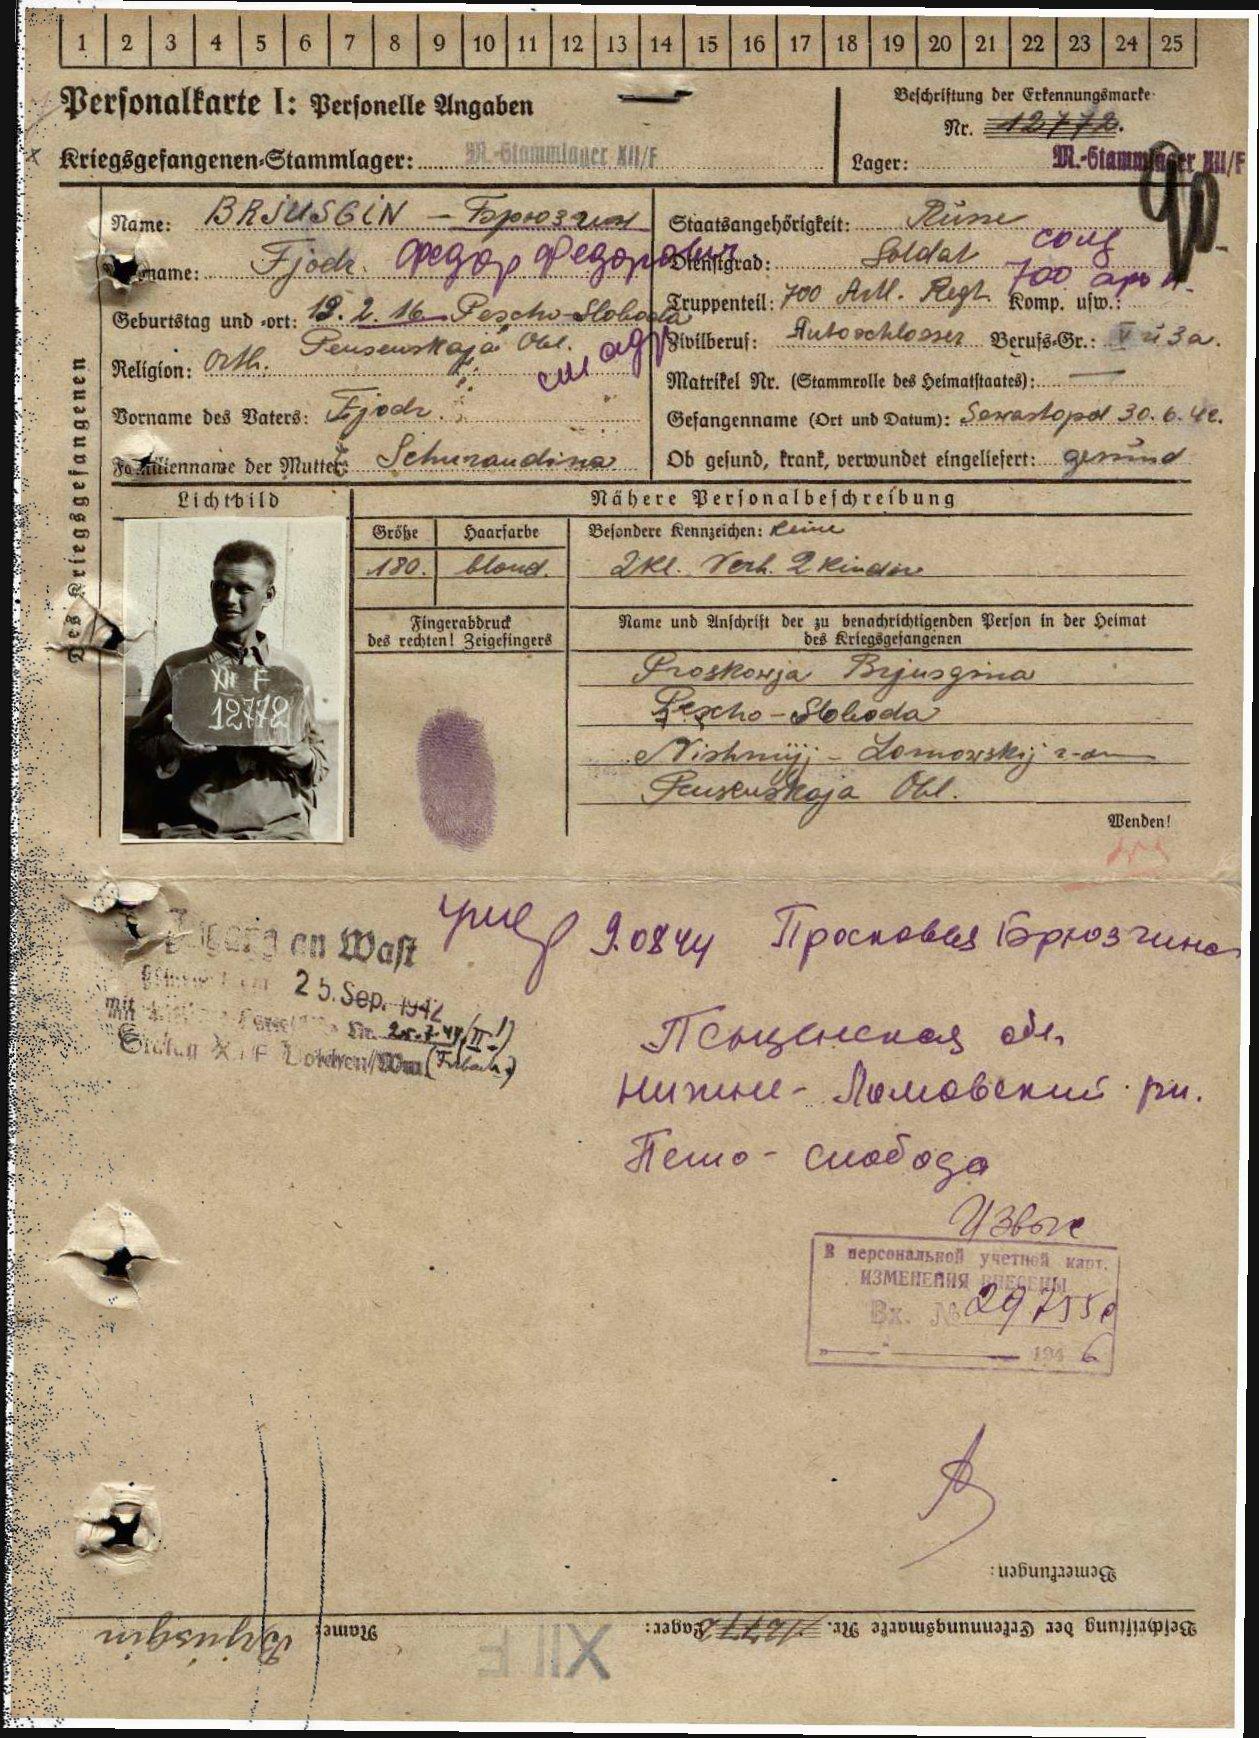 1 2 3 4 5 6 7 8 9 10 11 12 13 14 15 16 17 18 19 20 21 22 23 24 25
Personalkarte I: Personelle Angaben
Kriegsgefangenen-Stammlager: M.-Stammlager XII/F
Beschriftung der Erkennungsmarke
Nr. 12772.
Lager: M.-Stammlager XII/F
Des Kriegsgefangenen
Name: BRJUSGIN – Брюзгин
Vorname: Fjodr. Федор Федорович
Geburtstag und -ort: 19.2.16 Pescho-Sloboda
Pensenskaja Obl.
Religion: Orth.
см адр
Vorname des Vaters: Fjodr.
Familienname der Mutter: Schurandina
Staatsangehörigkeit: Russe
Dienstgrad: Soldat солд
Truppenteil: 700 Artl. Regt. Komp. usw.: 700 арт п.
Zivilberuf: Autoschlosser Berufs-Gr.: V ü 3a.
Matrikel Nr. (Stammrolle des Heimatstaates): —
Gefangenname (Ort und Datum): Sewastopol 30.6.42.
Ob gesund, krank, verwundet eingeliefert: gesund
Lichtbild
XII F
12772
Nähere Personalbeschreibung
Größe Haarfarbe
180. blond.
Besondere Kennzeichen: keine
2 Kl. Verh. 2 Kinder
Fingerabdruck
des rechten! Zeigefingers
Name und Anschrift der zu benachrichtigenden Person in der Heimat
des Kriegsgefangenen
Proskowja Brjusgina
Pescho-Sloboda
Nishnijj-Lomowskij r-on
Pensenskaja Obl.
Wenden!
Zugang an Wast
25. Sep. 1942
Mit Nr. 25.7.44 (II!)
Stalag XII F
9.0844 Прасковья Брюзгина
Пензенская обл.
Нижне-Ломовский рн.
Пешо-слобода
В персональной учетной карт.
ИЗМЕНЕНИЯ ВНЕСЕНЫ
Вх. № 29755с
"—" — 194 6
Bemerkungen:
Beschriftung der Erkennungsmarke Nr. 12772 Lager: XII F Name: Brjusgin